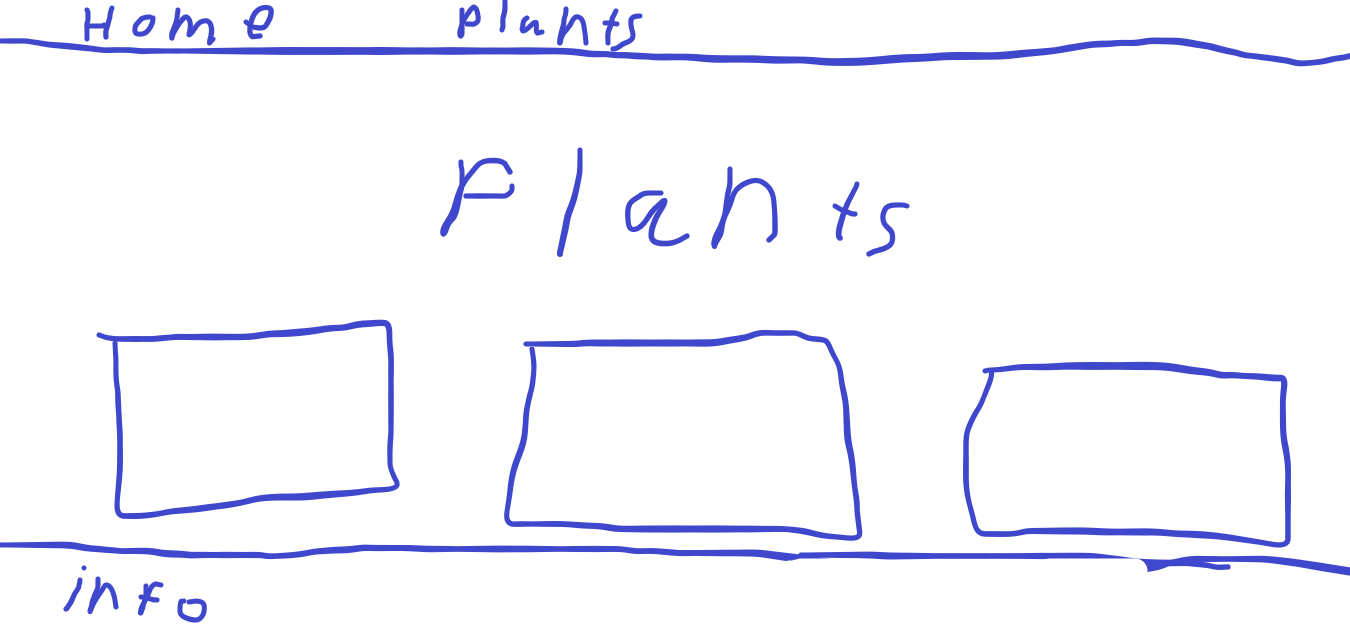 Home plants
Plants
info